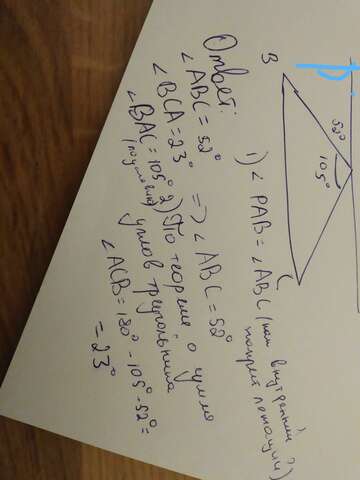 P
B
52°
105°
C
1) ∠ PAB = ∠ ABC (как внутренний
накрест лежащий)
=> ∠ ABC = 52°
2) По теореме о сумме
углов треугольника
∠ ACB = 180° - 105° - 52° =
= 23°
Ответ:
∠ ABC = 52°
∠ BCA = 23°
∠ BAC = 105°
(по условию)